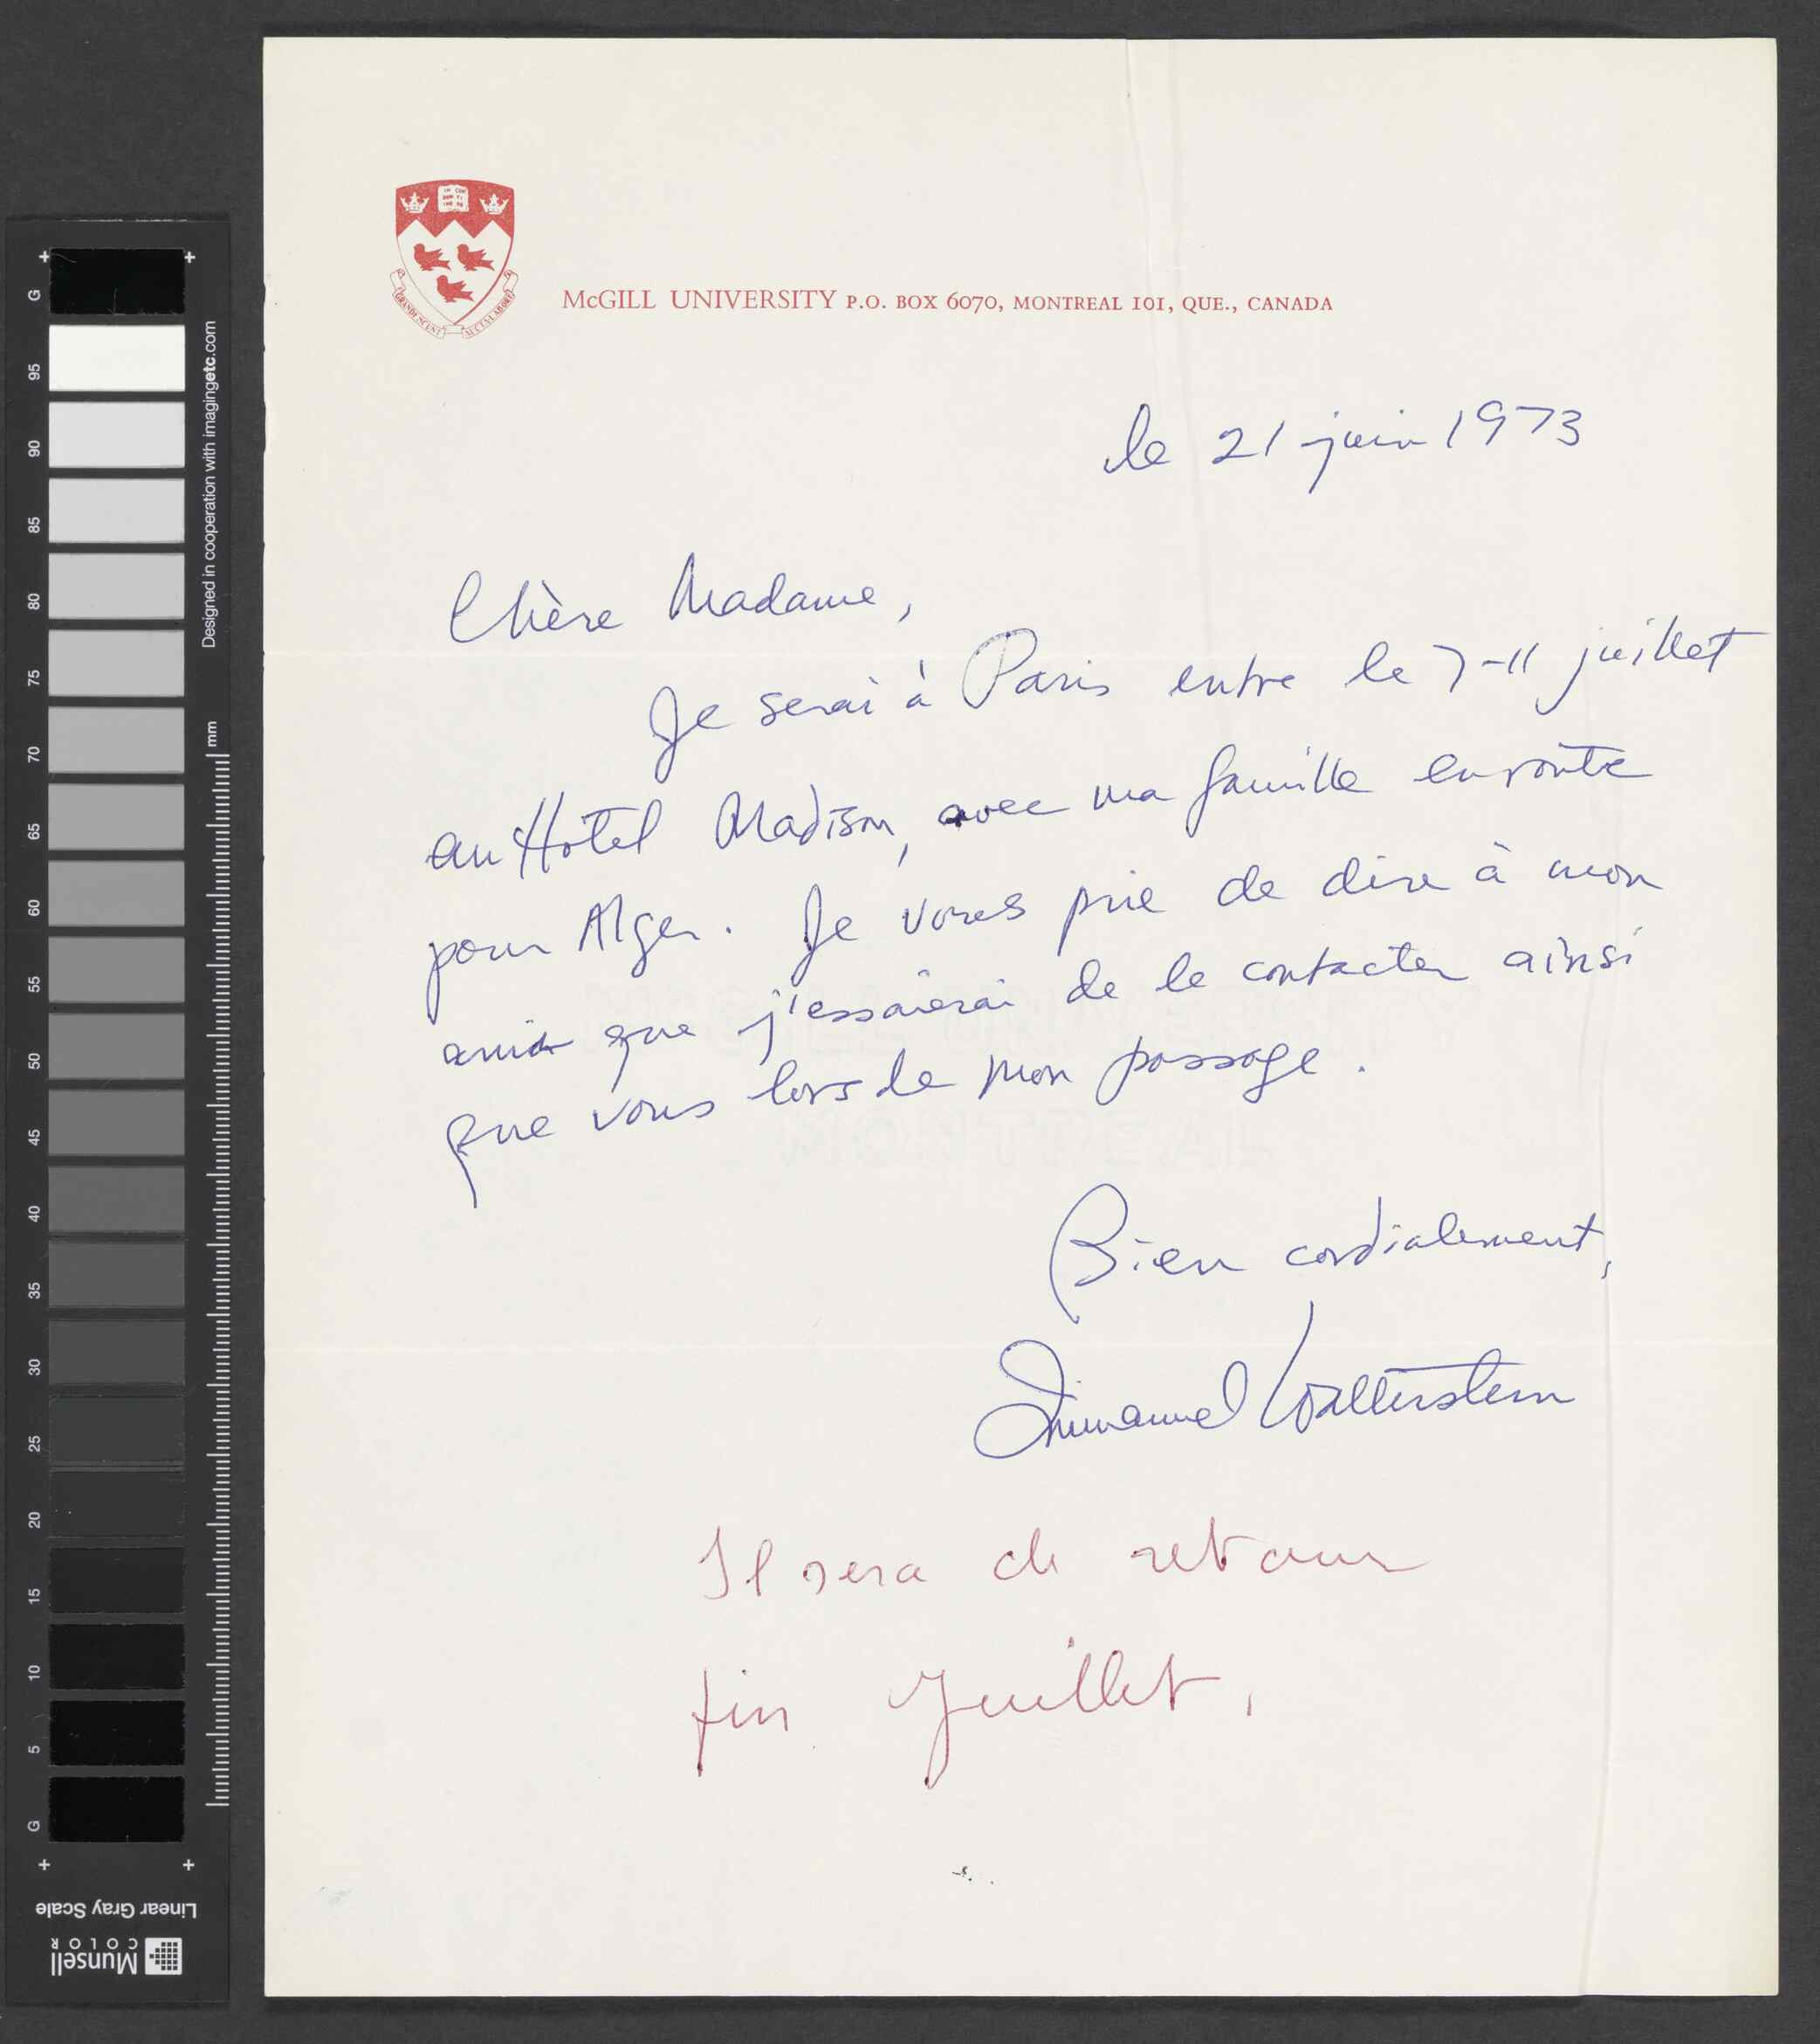 McGILL UNIVERSITY P.O. BOX 6070, MONTREAL 101, QUE., CANADA
le 21 juin 1973
Chère Madame,
Je serai à Paris entre le 7-11 juillet
au Hotel Madison, avec ma famille en route
pour Alger. Je vous prie de dire à mon
ami que j'essaierai de le contacter ainsi
que vous lors de mon passage.
Bien cordialement,
Immanuel Wallerstein
Il sera de retour
fin Juillet.
GRANDESCUNT AUCTA LABORE
McGILL UNIVERSITY
MONTREAL
G 95 90 85 80 75 70 65 60 55 50 45 40 35 30 25 20 15 10 5 G
Designed in cooperation with imagingetc.com
mm
Linear Gray Scale
Munsell
COLOR